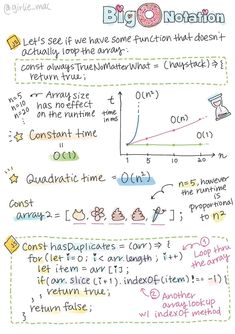 @girlie_mac
Big O Notation
Let's see if we have some function that doesn't
actually loop the array:
const alwaysTrueNoMatterWhat = (haystack) => {
return true;
n=5
n=10
n=20
Array size
has no effect
on the runtime
Constant time
=
O(1)
time
in ms
O(n²)
O(n)
1 5 10 20 n
Quadratic time = O(n²)
Const
array2 = [
]
n=5, however
the runtime
is
proportional
to n²
Const hasDuplicates = (arr) => {
for (let i=0; i< arr.length; i++)
let item = arr[i];
if(arr.slice(i+1).indexOf(item) !== -1) {
return true;
}
return false;
}
① Loop thru
the array
② Another
array lookup
w/ indexOf method